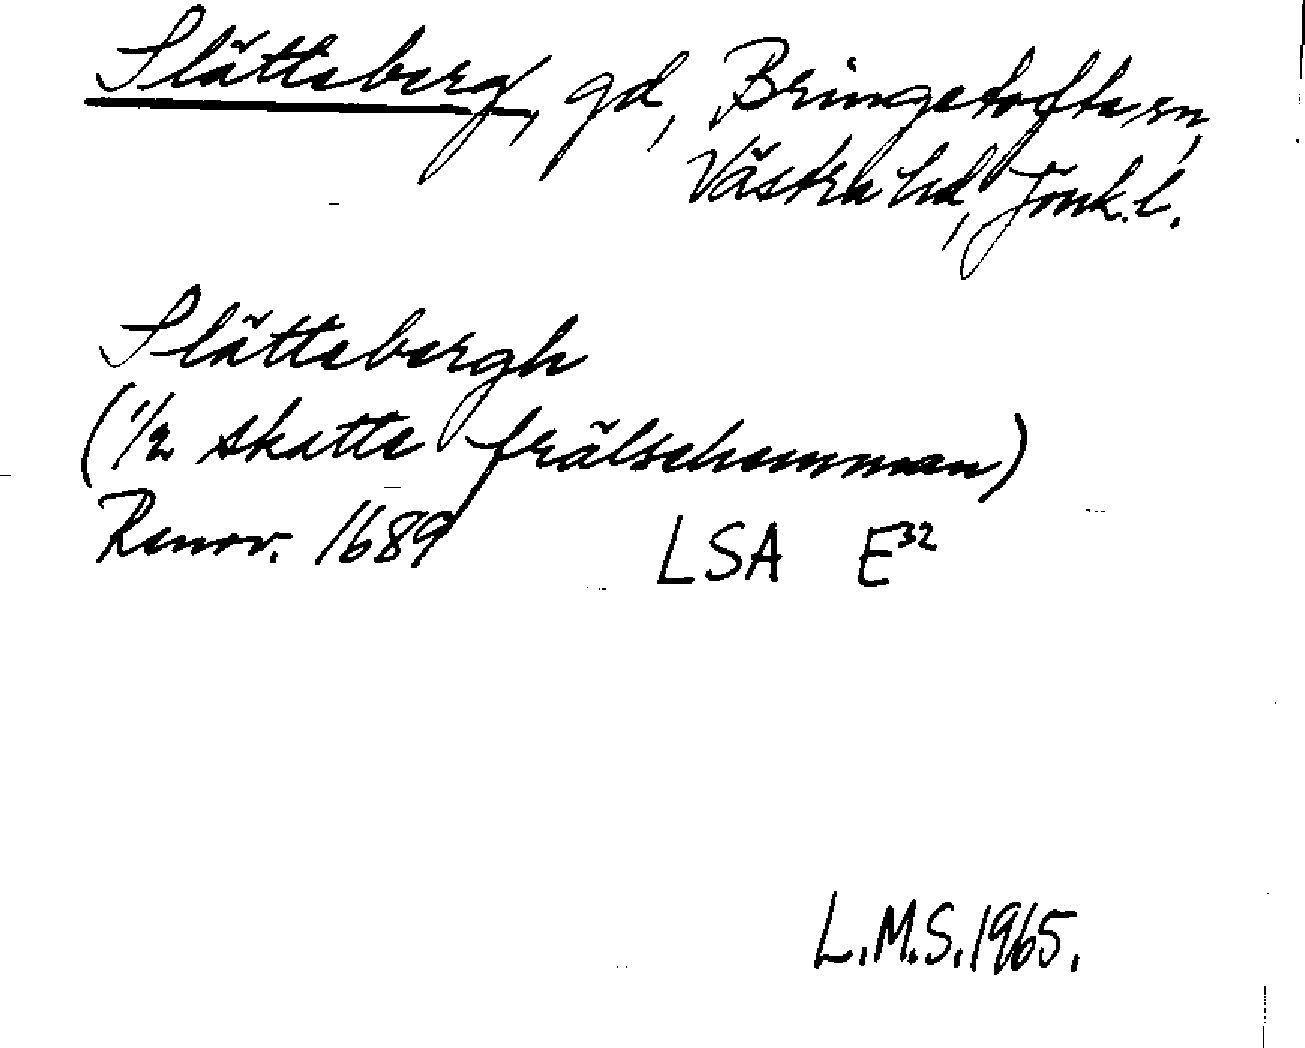 Slätteberg, gd, Bringetofta sn,
Västra hd, Jönk.l.
Slättebergh
(1/2 skatte frälsehemman)
Renov. 1689 LSA E32
L.M.S. 1965.